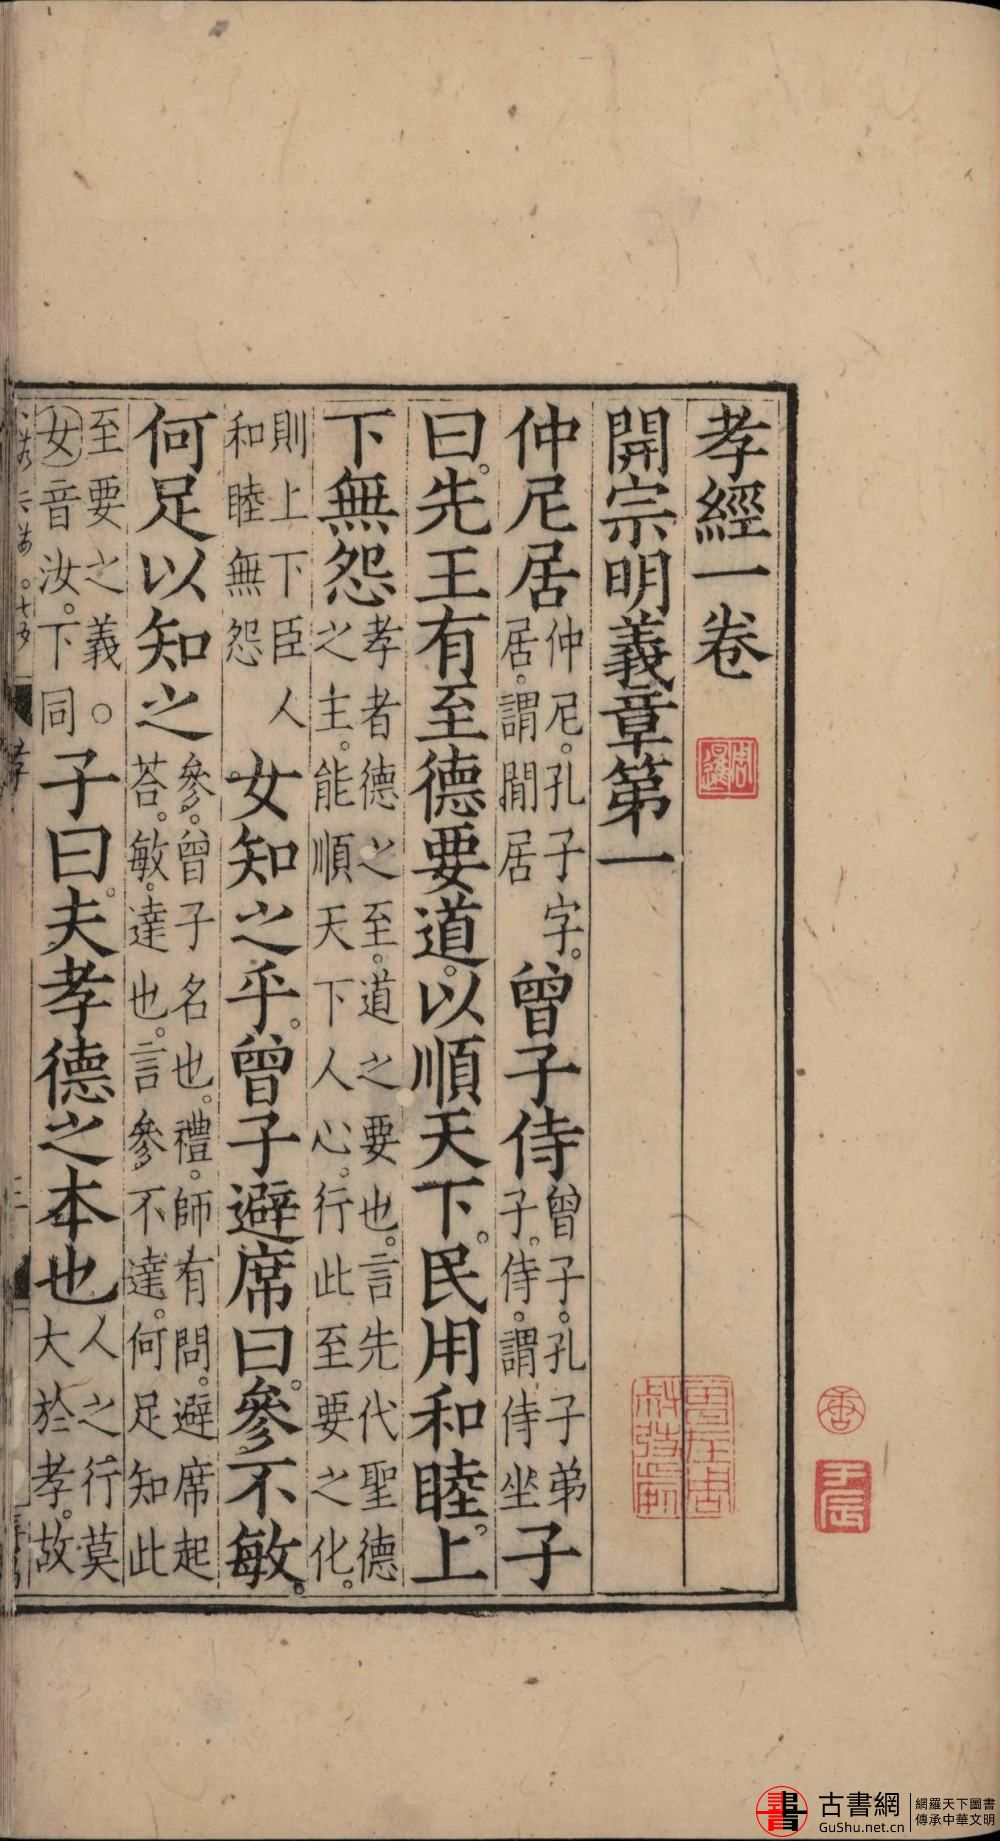 孝經一卷
開宗明義章第一
仲尼居
仲尼。孔子字。
居。謂閒居
曾子侍
曾子。孔子弟
子。侍。謂侍坐
子
曰。先王有至德要道。以順天下。民用和睦。上
下無怨
孝者德之至。道之要也。言先代聖德
之主。能順天下人心。行此至要之化。
則上下臣人
和睦無怨
女知之乎。曾子避席曰。參不敏。
何足以知之
參。曾子名也。禮。師有問。避席起
荅。敏。達也。言參不達。何足知此
至要之義。○
女音汝。下同
子曰。夫孝德之本也
人之行莫
大於孝。故
周暹
古書網
GuShu.net.cn
網羅天下圖書
傳承中華文明